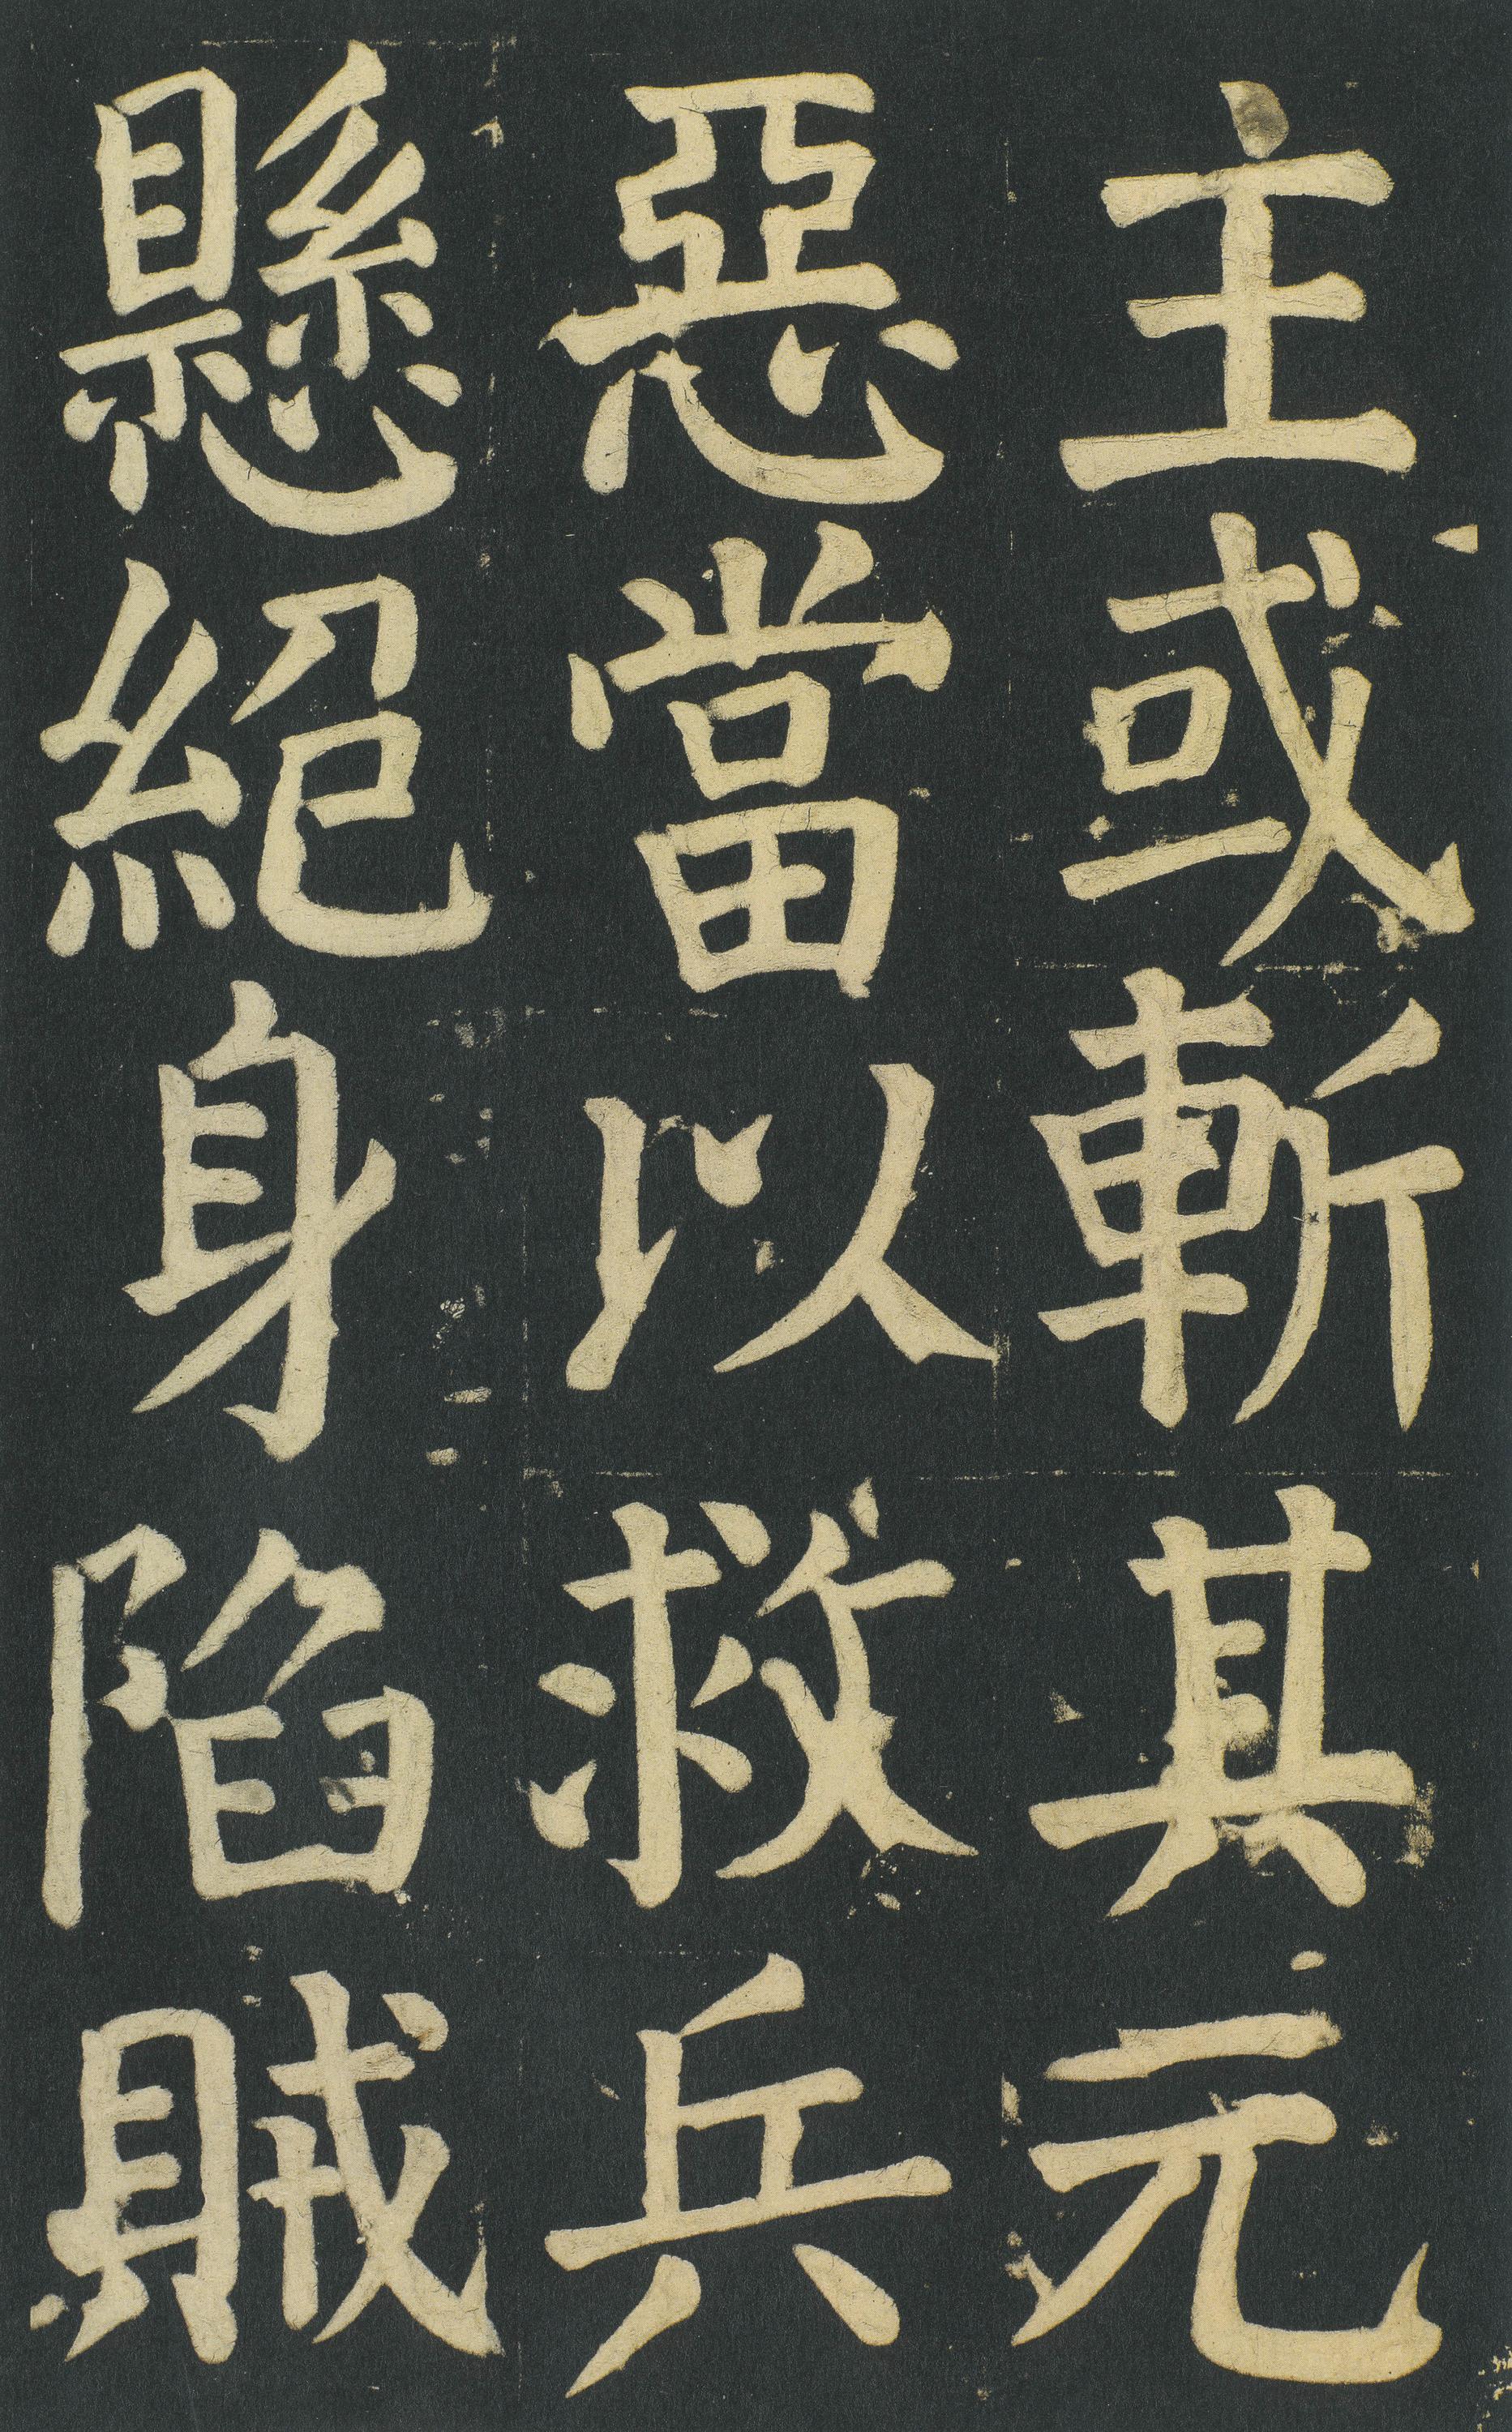 主或斬其元
惡當以救兵
懸絕身陷賊